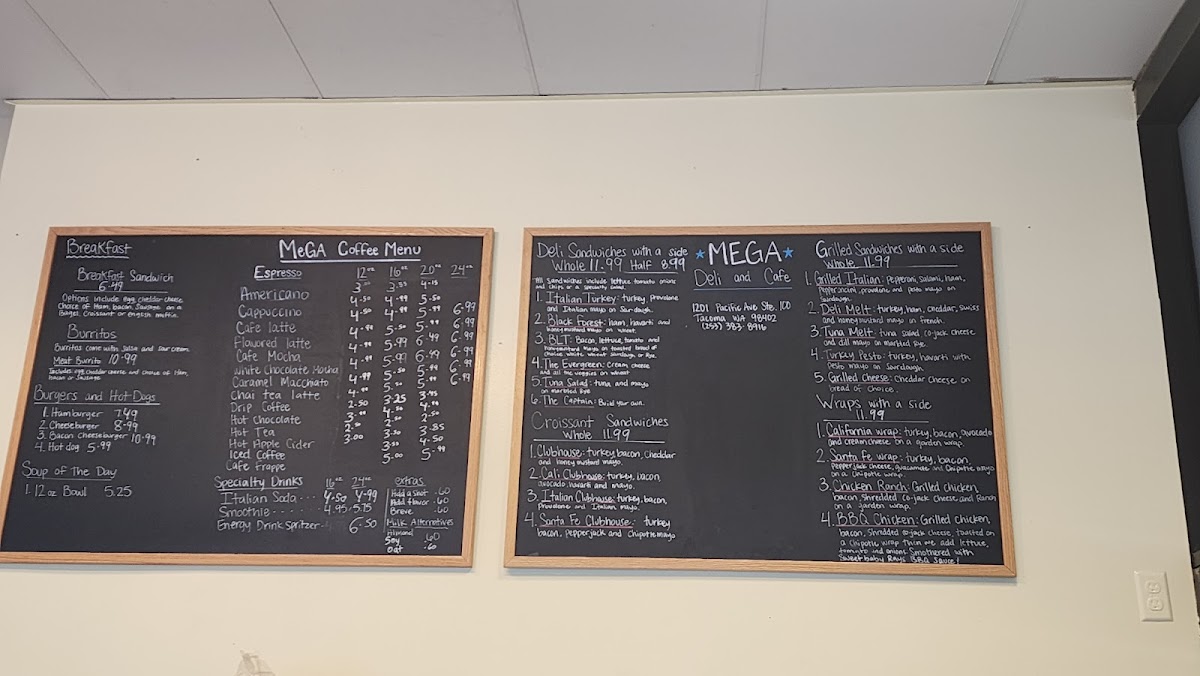 Breakfast
Breakfast Sandwich
6.49
Options include egg, cheddar cheese
choice of Ham, bacon, Sausage on a
Bagel, Croissant or english muffin.
Burritos
Burritos come with salsa and sour cream.
Meat Burrito 10.99
Includes egg cheddar cheese and choice of Ham,
bacon or Sausage
Burgers and Hot Dogs
1. Hamburger 7.49
2. Cheeseburger 8.99
3. Bacon Cheeseburger 10.99
4. Hot dog 5.99
Soup of The Day
1. 12 oz Bowl 5.25
MeGA Coffee Menu
Espresso 12oz 16oz 20oz 24oz
Americano
Cappuccino
Cafe latte
Flavored latte
Cafe Mocha
White Chocolate Mocha
Caramel Macchiato
Chai tea latte
Drip Coffee
Hot Chocolate
Hot Tea
Hot Apple Cider
Iced Coffee
Cafe Frappe
Specialty Drinks 16oz 24oz
Italian Soda 4.50 4.99
Smoothie 4.95 5.75
Energy Drink Spritzer 6.50
extras
Add a shot .60
Add flavor .60
Breve .60
Milk Alternatives
Almond
Soy .60
Oat .60
Deli Sandwiches with a side
Whole 11.99 Half 8.99
All Sandwiches include lettuce tomato onions
and chips or a specialty bread.
1. Italian Turkey: turkey, provolone
and Italian mayo on Sourdough.
2. Black Forest: ham, havarti and
honey mustard mayo on wheat.
3. BLT: Bacon, lettuce, tomato and
mayo on toasted bread of
choice, white wheat Sourdough or Rye.
4. The Evergreen: Cream cheese
and all the veggies on wheat.
5. Tuna Salad: tuna, and mayo
on marbled Rye
6. The Captain: Build your own.
Croissant Sandwiches
Whole 11.99
1. Clubhouse: turkey, bacon, Cheddar
and honey mustard mayo.
2. Cali Clubhouse: turkey, bacon,
avocado, havarti and mayo.
3. Italian Clubhouse: turkey, bacon,
Provolone and Italian mayo.
4. Santa Fe Clubhouse: turkey
bacon, pepperjack and Chipotle mayo
MEGA
Deli and Cafe
1201 Pacific Ave Ste. 100
Tacoma WA 98402
(253) 383-8916
Grilled Sandwiches with a side
whole 11.99
1. Grilled Italian: Pepperoni, Salami, ham,
Pepperoncini, provolone and pesto mayo on
Sourdough.
2. Deli Melt: turkey, ham, cheddar, swiss
and honey mustard mayo on french.
3. Tuna Melt: tuna salad co-jack cheese
and dill mayo on marbled Rye.
4. Turkey Pesto: turkey, havarti with
Pesto mayo on Sourdough.
5. Grilled Cheese: Cheddar Cheese on
bread of choice.
Wraps with a side
11.99
1. California wrap: turkey, bacon, avocado
and cream cheese on a garden wrap.
2. Santa Fe wrap: turkey, bacon,
Pepper jack cheese, guacamole and Chipotle mayo
on a Chipotle wrap.
3. Chicken Ranch: Grilled chicken,
bacon, shredded co-jack cheese, and Ranch
on a garden wrap.
4. BBQ Chicken: Grilled chicken,
bacon, shredded co-jack cheese, toasted on
a Chipotle wrap then we add lettuce,
tomato and onions. Smothered with
Sweet baby Rays BBQ Sauce!